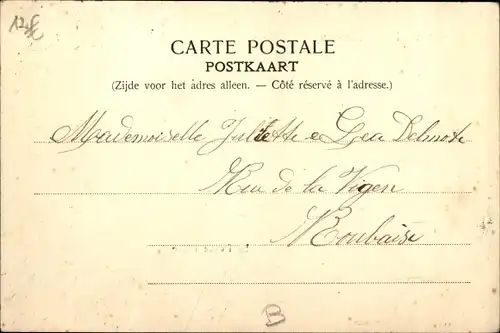 12€
CARTE POSTALE
POSTKAART
(Zijde voor het adres alleen. — Côté réservé à l'adresse.)
Mademoiselle Juliette e Lea Delmote
Rue de la Vigen
Roubaix
B